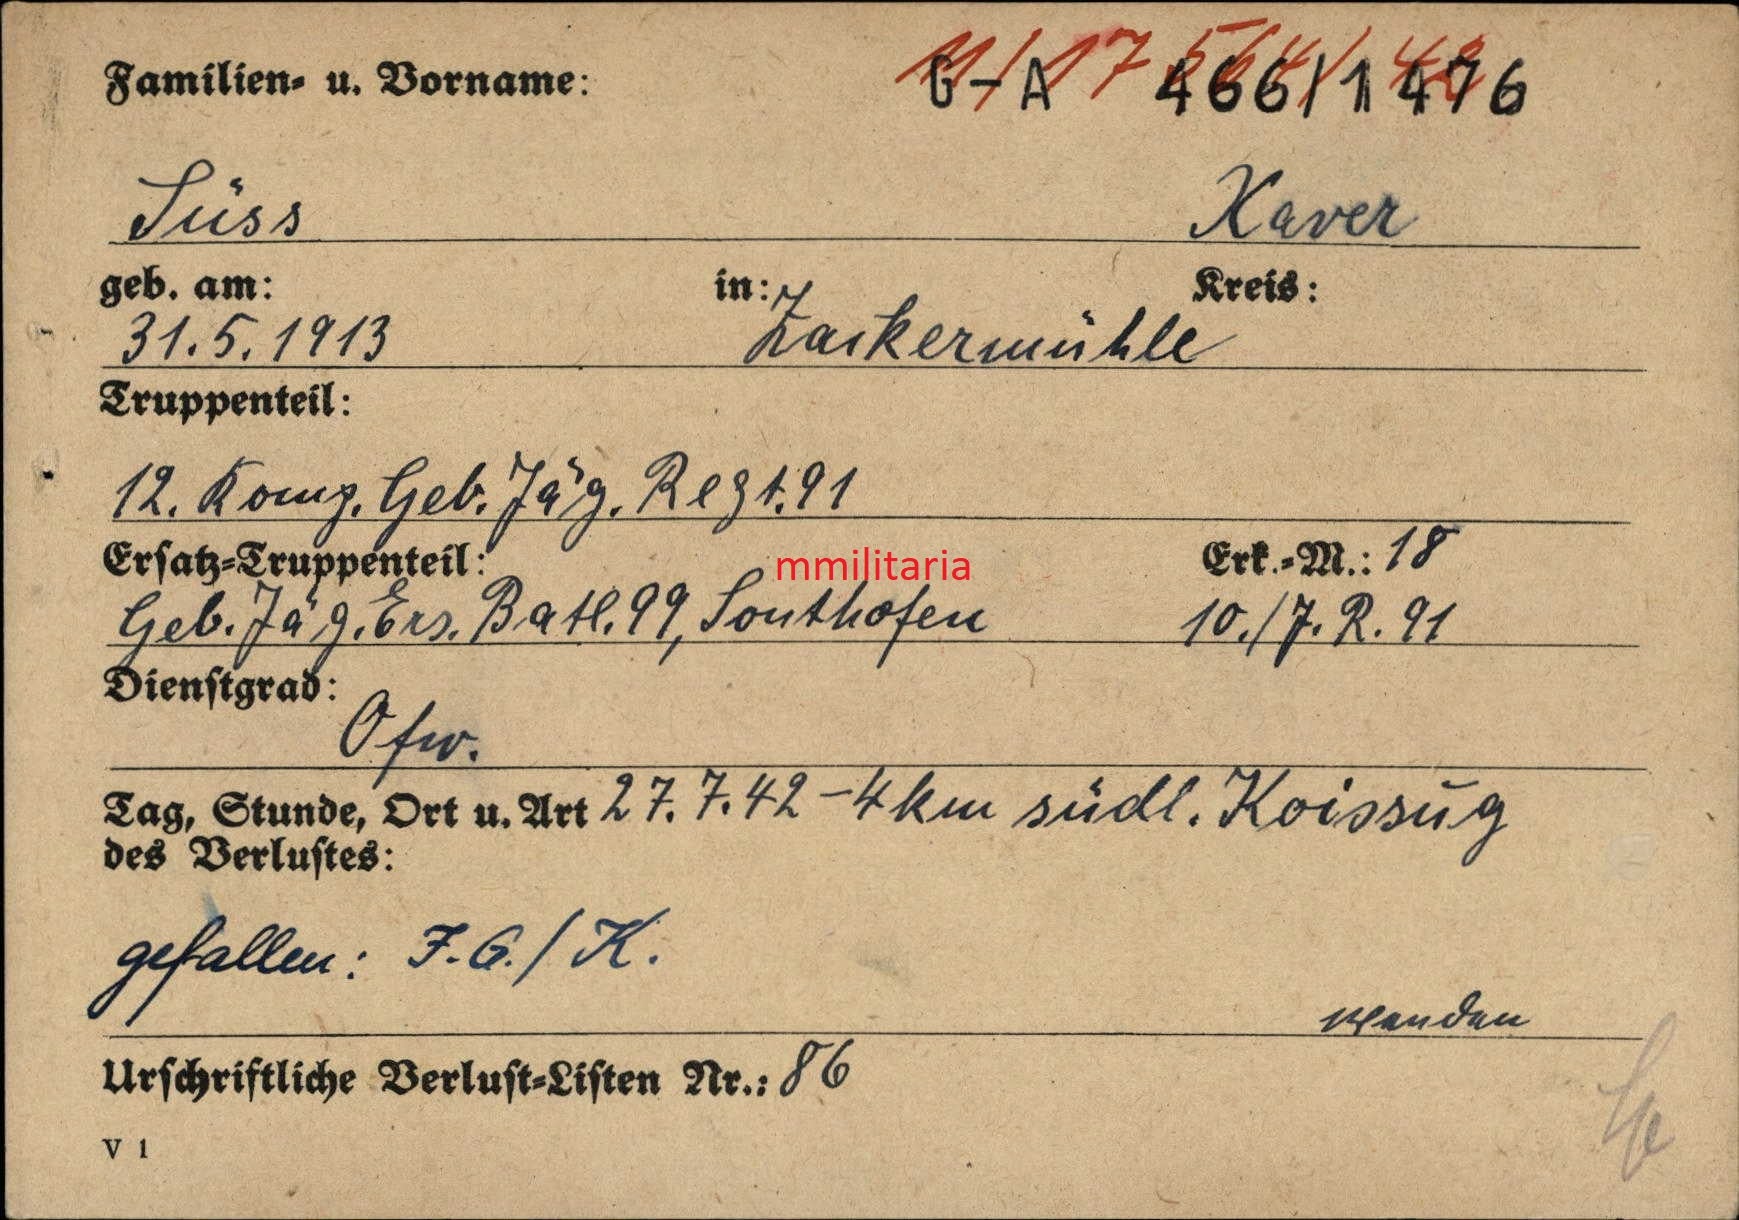 Familien- u. Vorname:
G-A 466/1476
Süss Xaver
geb. am: in: Kreis:
31.5.1913 Zackermühle
Truppenteil:
12. Komp. Geb. Jäg. Regt. 91
Ersatz-Truppenteil: mmilitaria Erk.-M.: 18
Geb. Jäg. Ers. Batl. 99, Sonthofen 10./J. R. 91
Dienstgrad:
Ofw.
Tag, Stunde, Ort u. Art 27.7.42 - 4 km südl. Koissug
des Verlustes:
gefallen: I.G./K.
wenden
Urschriftliche Verlust-Listen Nr.: 86
V 1